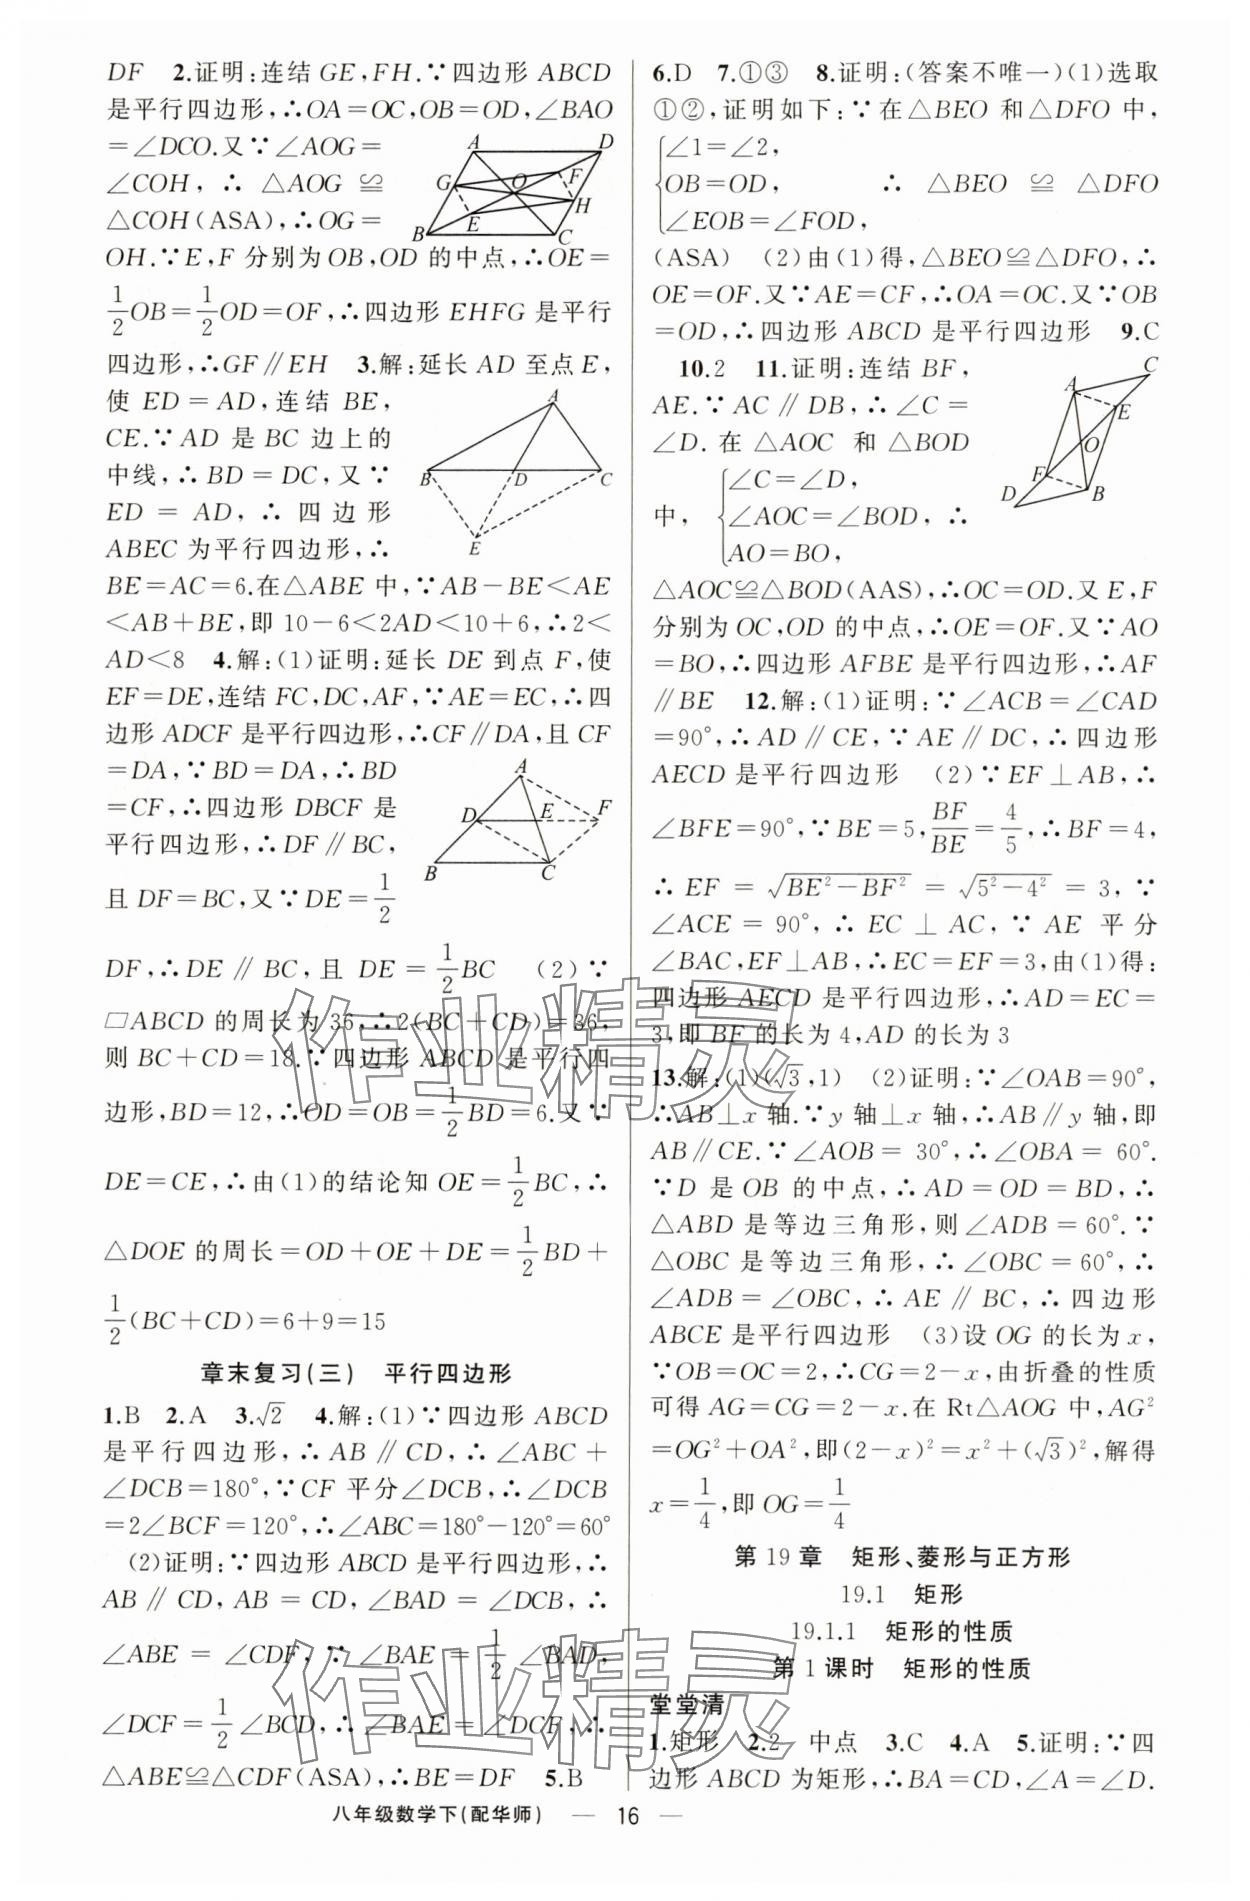 DF　2.证明:连结 GE,FH.∵四边形 ABCD
是平行四边形,∴OA=OC,OB=OD,∠BAO
=∠DCO.又∵∠AOG=
∠COH,∴△AOG≌
△COH(ASA),∴OG=
OH.∵E,F 分别为 OB,OD 的中点,∴OE=
1/2OB=1/2OD=OF,∴四边形 EHFG 是平行
四边形,∴GF∥EH　3.解:延长 AD 至点 E,
使 ED=AD,连结 BE,
CE.∵AD 是 BC 边上的
中线,∴BD=DC,又∵
ED=AD,∴四边形
ABEC 为平行四边形,∴
BE=AC=6.在△ABE 中,∵AB-BE<AE
<AB+BE,即 10-6<2AD<10+6,∴2<
AD<8　4.解:(1)证明:延长 DE 到点 F,使
EF=DE,连结 FC,DC,AF,∵AE=EC,∴四
边形 ADCF 是平行四边形,∴CF∥DA,且 CF
=DA,∵BD=DA,∴BD
=CF,∴四边形 DBCF 是
平行四边形,∴DF∥BC,
且 DF=BC,又∵DE=1/2
DF,∴DE∥BC,且 DE=1/2BC　(2)∵
□ABCD 的周长为 36,∴2(BC+CD)=36,
则 BC+CD=18.∵四边形 ABCD 是平行四
边形,BD=12,∴OD=OB=1/2BD=6.又∵
DE=CE,∴由(1)的结论知 OE=1/2BC,∴
△DOE 的周长=OD+OE+DE=1/2BD+
1/2(BC+CD)=6+9=15
章末复习(三)　平行四边形
1.B　2.A　3.√2　4.解:(1)∵四边形 ABCD
是平行四边形,∴AB∥CD,∴∠ABC+
∠DCB=180°,∵CF 平分∠DCB,∴∠DCB
=2∠BCF=120°,∴∠ABC=180°-120°=60°
(2)证明:∵四边形 ABCD 是平行四边形,∴
AB∥CD,AB=CD,∠BAD=∠DCB,∴
∠ABE=∠CDF,∵∠BAE=1/2∠BAD,
∠DCF=1/2∠BCD,∴∠BAE=∠DCF,∴
△ABE≌△CDF(ASA),∴BE=DF　5.B
6.D　7.①③　8.证明:(答案不唯一)(1)选取
①②,证明如下:∵在△BEO 和△DFO 中,
∠1=∠2,
OB=OD,　∴△BEO≌△DFO
∠EOB=∠FOD,
(ASA)　(2)由(1)得,△BEO≌△DFO,∴
OE=OF.又∵AE=CF,∴OA=OC.又∵OB
=OD,∴四边形 ABCD 是平行四边形　9.C
10.2　11.证明:连结 BF,
AE.∵AC∥DB,∴∠C=
∠D.在△AOC 和△BOD
∠C=∠D,
中, ∠AOC=∠BOD,∴
AO=BO,
△AOC≌△BOD(AAS),∴OC=OD.又 E,F
分别为 OC,OD 的中点,∴OE=OF.又∵AO
=BO,∴四边形 AFBE 是平行四边形,∴AF
∥BE　12.解:(1)证明:∵∠ACB=∠CAD
=90°,∴AD∥CE,∵AE∥DC,∴四边形
AECD 是平行四边形　(2)∵EF⊥AB,∴
∠BFE=90°,∵BE=5,BF/BE=4/5,∴BF=4,
∴EF=√(BE²-BF²)=√(5²-4²)=3,∵
∠ACE=90°,∴EC⊥AC,∵AE 平分
∠BAC,EF⊥AB,∴EC=EF=3,由(1)得:
四边形 AECD 是平行四边形,∴AD=EC=
3,即 BF 的长为 4,AD 的长为 3
13.解:(1)(√3,1)　(2)证明:∵∠OAB=90°,
∴AB⊥x 轴.∵y 轴⊥x 轴,∴AB∥y 轴,即
AB∥CE.∵∠AOB=30°,∴∠OBA=60°.
∵D 是 OB 的中点,∴AD=OD=BD,∴
△ABD 是等边三角形,则∠ADB=60°.∵
△OBC 是等边三角形,∴∠OBC=60°,∴
∠ADB=∠OBC,∴AE∥BC,∴四边形
ABCE 是平行四边形　(3)设 OG 的长为 x,
∵OB=OC=2,∴CG=2-x,由折叠的性质
可得 AG=CG=2-x.在 Rt△AOG 中,AG²
=OG²+OA²,即(2-x)²=x²+(√3)²,解得
x=1/4,即 OG=1/4
第 19 章　矩形、菱形与正方形
19.1　矩形
19.1.1　矩形的性质
第 1 课时　矩形的性质
堂堂清
1.矩形　2.2　中点　3.C　4.A　5.证明:∵四
边形 ABCD 为矩形,∴BA=CD,∠A=∠D.
八年级数学下(配华师)　— 16 —
作业精灵
作业精灵